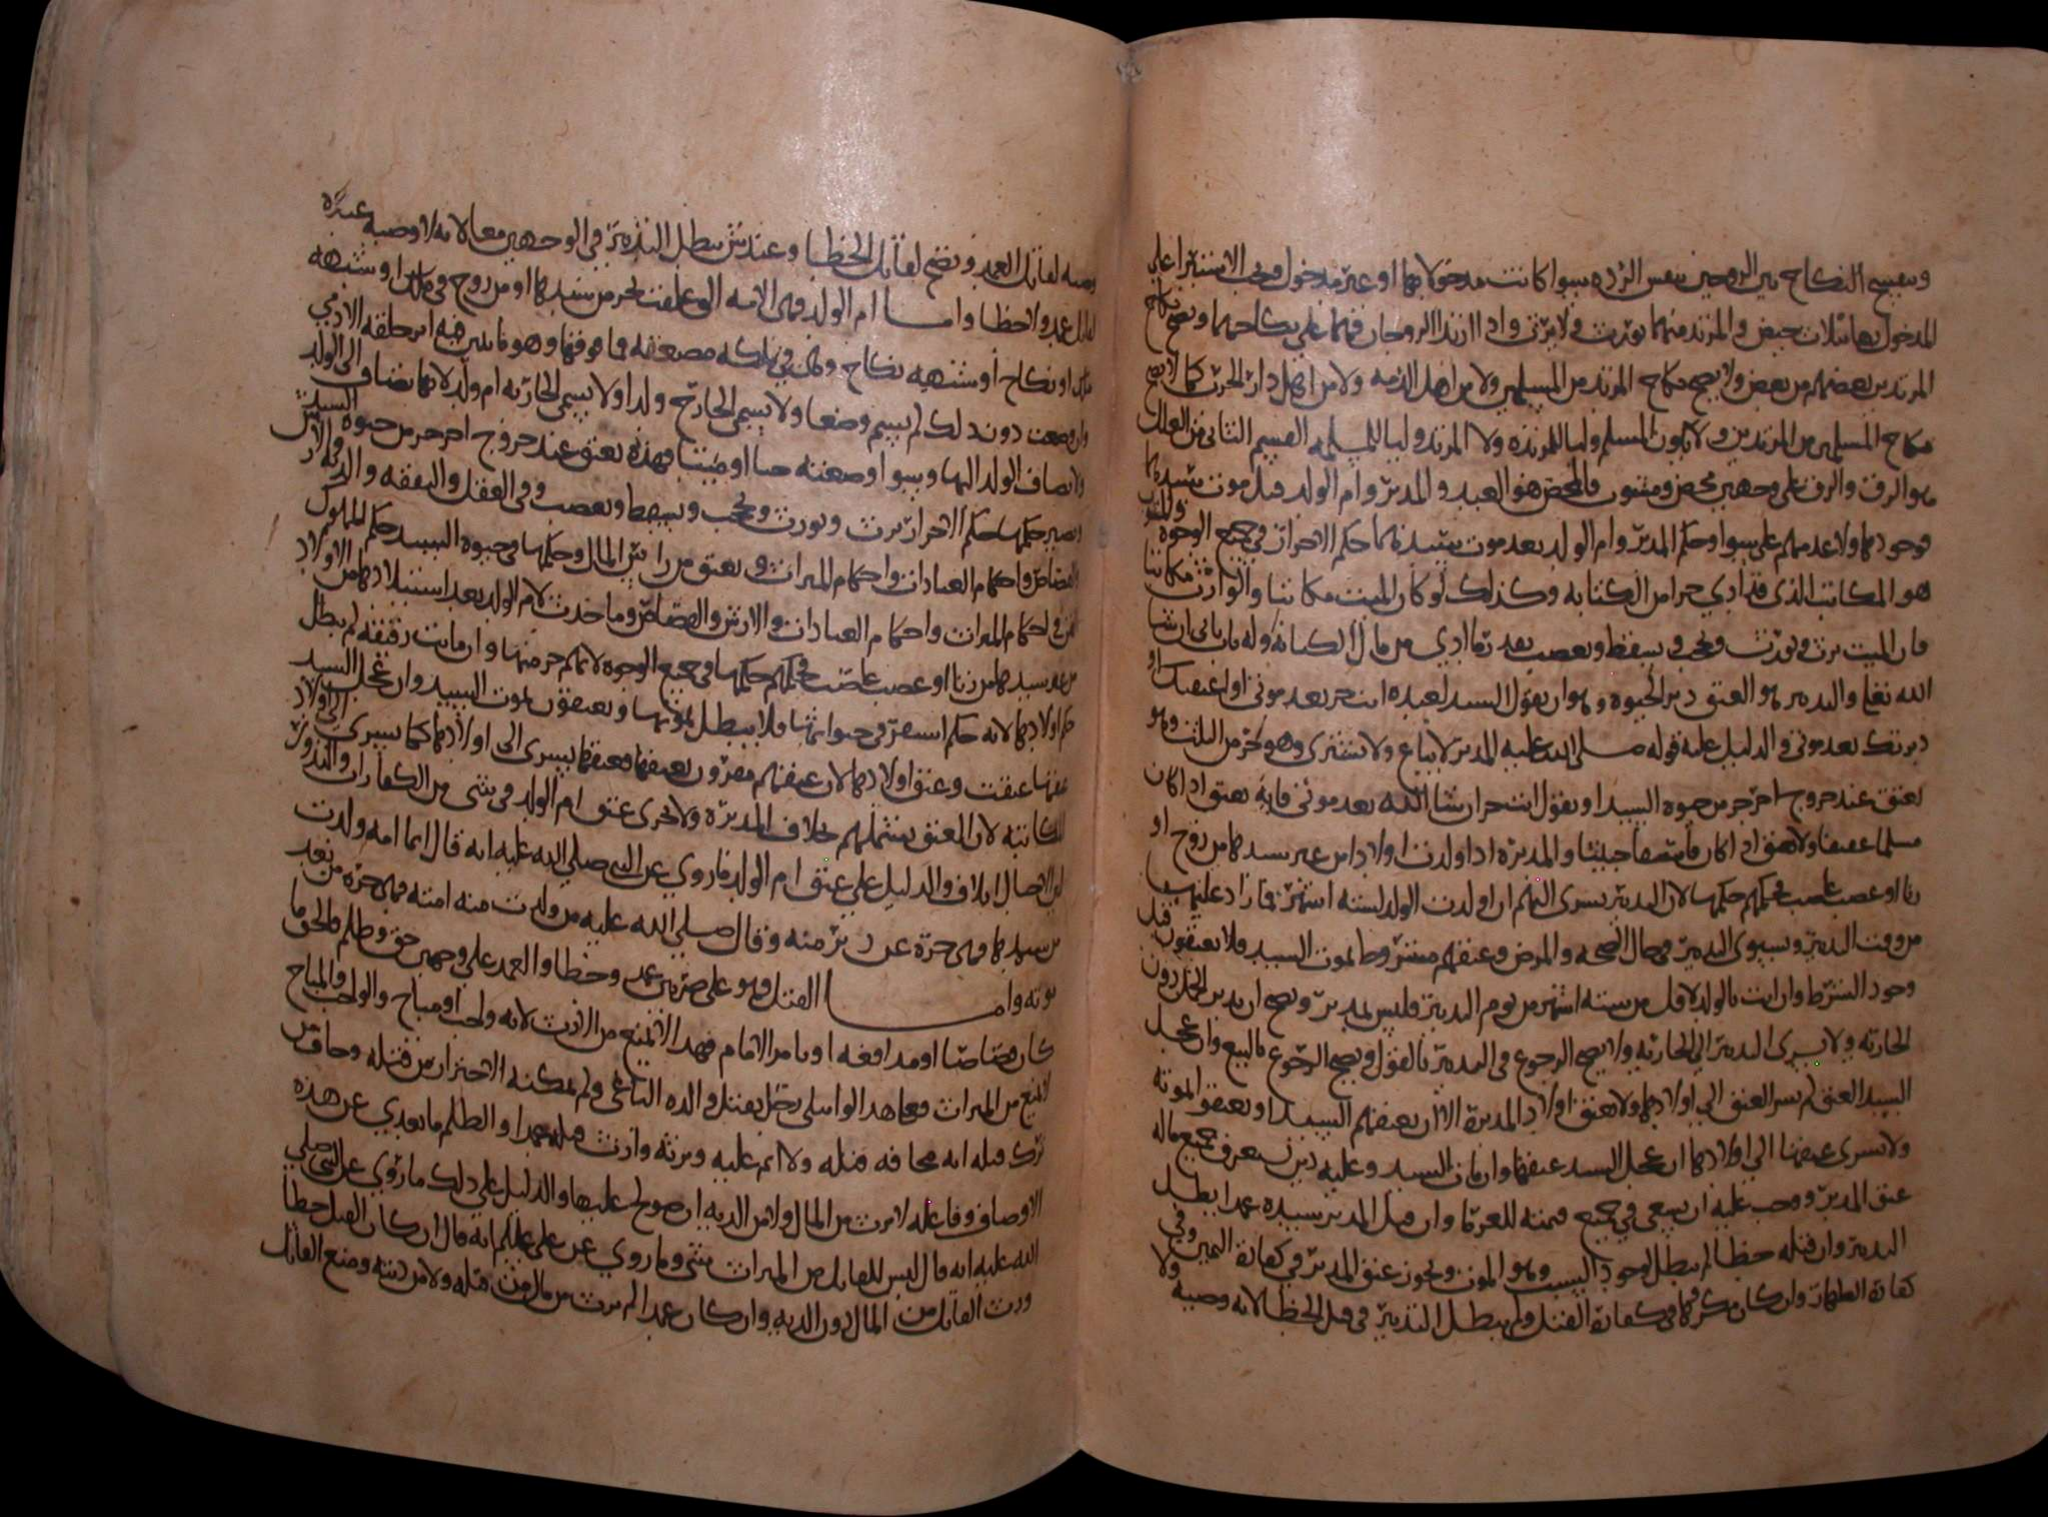 وينفسخ النكاح بين الزوجين بنفس الرده سوا كانت مدخولا بها او غير مدخول ويجب الاستبرا على
المدخول بها بثلاث حيض والمرتد منهما يورث ولا يرث واذا ارتدا الزوجان فهما على نكاحهما ويصح نكاح
المرتدين بعضهم من بعض ولا يصح نكاح المرتد من المسلمين ولا من اهل الذمه ولا من اهل دار الحرب كما لا يصح
نكاح المسلمين من المرتدين ولا يكون المسلم وليا للمرتده ولا المرتد وليا للمسلمه القسم الثاني من العلل
هو الرق والرق على وجهين محض ومشوب فالمحض هو العبد والمدبر وام الولد قبل موت سيدهما
فوجودهما وعدمهم على سوا وحكم المدبر وام الولد بعد موت سيدهما حكم الاحرار في جميع الوجوه والمشوب
هو المكاتب الذي قد ادي جزا من الكتابه وكذلك لو كان الميت مكاتبا والوارث مكاتبا
فان الميت يرث ويورث ويحجب ويسقط ويعصب بقدر ما ادي من مال الكتابه وله باب ياتي ان شا
الله تعالى والتدبير هو العتق دبر الحيوه وهو ان يقول السيد لعبده انت حر بعد موتي او اعتقتك او
دبرتك بعد موتي والدليل عليه قوله صلى الله عليه المدبر لا يباع ولا يشترى وهو حر من الثلث وهو
يعتق عند خروج اخر جز من حيوه السيد او يقول انت حر ان شا الله بعد موتي فانه يعتق اذا كان
مسلما عفيفا ولا يعتق اذا كان فاسقا خبيثا والمدبره اذا ولدت اولادا من غير سيدها من زوج او
زنا او غصب غاصب فحكمهم حكمها لان التدبير يسري اليهم ان ولدت الولد لسته اشهر فما زاد عليها
من وقت التدبير ويستوي التدبير في حال الصحه والمرض وعتقهم مشروط بموت السيد فلا يعتقون قبل
وجود الشرط وان اتت بالولد لاقل من سته اشهر من يوم التدبير فليس بمدبر ويصح ان يدبر الحمل دون
الجاريه ولا يسري التدبير الى الجاريه ولا يصح الرجوع في التدبير بالقول ويصح الرجوع بالبيع وان عجل
السيد العتق لم يسر العتق الى اولادها ولا يعتق اولاد المدبرة الا ان يعتقهم السيد او يعتقوا بموته
ولا يسري عتقها الى اولادها ان عجل السيد عتقها وان مات السيد وعليه دين يستغرق جميع ماله
عتق المدبر ووجب عليه ان يسعى في جميع قيمته للغرما وان قتل المدبر سيده عمدا بطل
التدبير وان قتله خطا لم يبطل لوجود السبب وهو الموت ويجوز عتق المدبر في كفارة اليمين وفي
كفارة الظهار وان كان مكرها في كفارة القتل ولم يبطل التدبير في قتل الخطا لانه وصيه ولا
وصيه لقاتل العمد وتصح لقاتل الخطا وعند ش يبطل التدبير في الوجهين معا لانه لا وصيه عنده
لقاتل عمد ولا خطا وامــا ام الولد فهي الامه التي علقت بحر من سيدها او من زوج في ملك او شبهه
ملك او نكاح او شبهه نكاح ووضعت في ملكه مضغه فما فوقها وهو ما يتبين فيه اثر خلقه الادمي
وان وضعت دون ذلك لم يسم وضعا ولا يسمى الخارج ولدا ولا يسمى الجاريه ام ولد لانها تضاف الى الولد
ولا يضاف الولد اليها وسوا وضعته حيا او ميتا فهذه تعتق عند خروج اخر جز من حيوه السيد
ويصير حكمها حكم الاحرار ترث وتورث وتحجب وتسقط وتعصب وفي العقل والنفقه والديه والارش
والقصاص واحكام العبادات واحكام الميراث وتعتق من راس المال وحكمها في حيوه السيد حكم المملوك
القن في احكام الميراث واحكام العبادات والارش والقصاص وما حدث لام الولد بعد استيلادها من الاولاد
من غير سيدها من زنا او غصب غاصب فحكمهم حكمها في جميع الوجوه لانهم جز منها وان ماتت رقيقه لم يبطل
حكم اولادها لانه حكم استقر في حيوتها فلا يبطل بموتها ويعتقون بموت السيد وان عجل السيد
عتقها عتقت وعتق اولادها لان عتقهم مقرون بعتقها فعتقها يسري الى اولادها كما يسري الى اولاد
المكاتبه لان العتق يشملهم خلاف المدبره ولا يجزي عتق ام الولد في شي من الكفارات والنذور
والدليل على عتق ام الولد ما روي عن النبي صلى الله عليه انه قال ايما امه ولدت
من سيدها فهي حرة عن دبر منه وقال صلى الله عليه من ولدت منه امته فهي حره من بعد
موته وامــا القتل فهو على ضربين عمد وخطا والعمد على وجهين حق وظلم فالحق ما
كان قصاصا او مدافعه او بامر الامام فهذا لا يمنع من الارث لانه واجب او مباح والواجب والمباح
لا يمنع من الميراث فمجاهد الوابلي رجل يقتل والده الباغي ولم يمكنه الاحتراز من قتله وخاف من
ترك قتله انه مخافه قتله ولا اثم عليه ويرثه وارث قتله عمدا والظلم ما تعدي عن هذه
الاوصاف وفاعله لا يرث من المال ولا من الديه ان صولح عليها والدليل على ذلك ما روي عن النبي صلى
الله عليه انه قال ليس للقاتل من الميراث شي وما روي عن علي عليلم انه قال ان كان القتل خطا
ورث القاتل من المال دون الديه وان كان عمدا لم يرث من مال من قتله ولا من ديته ومنع القاتل